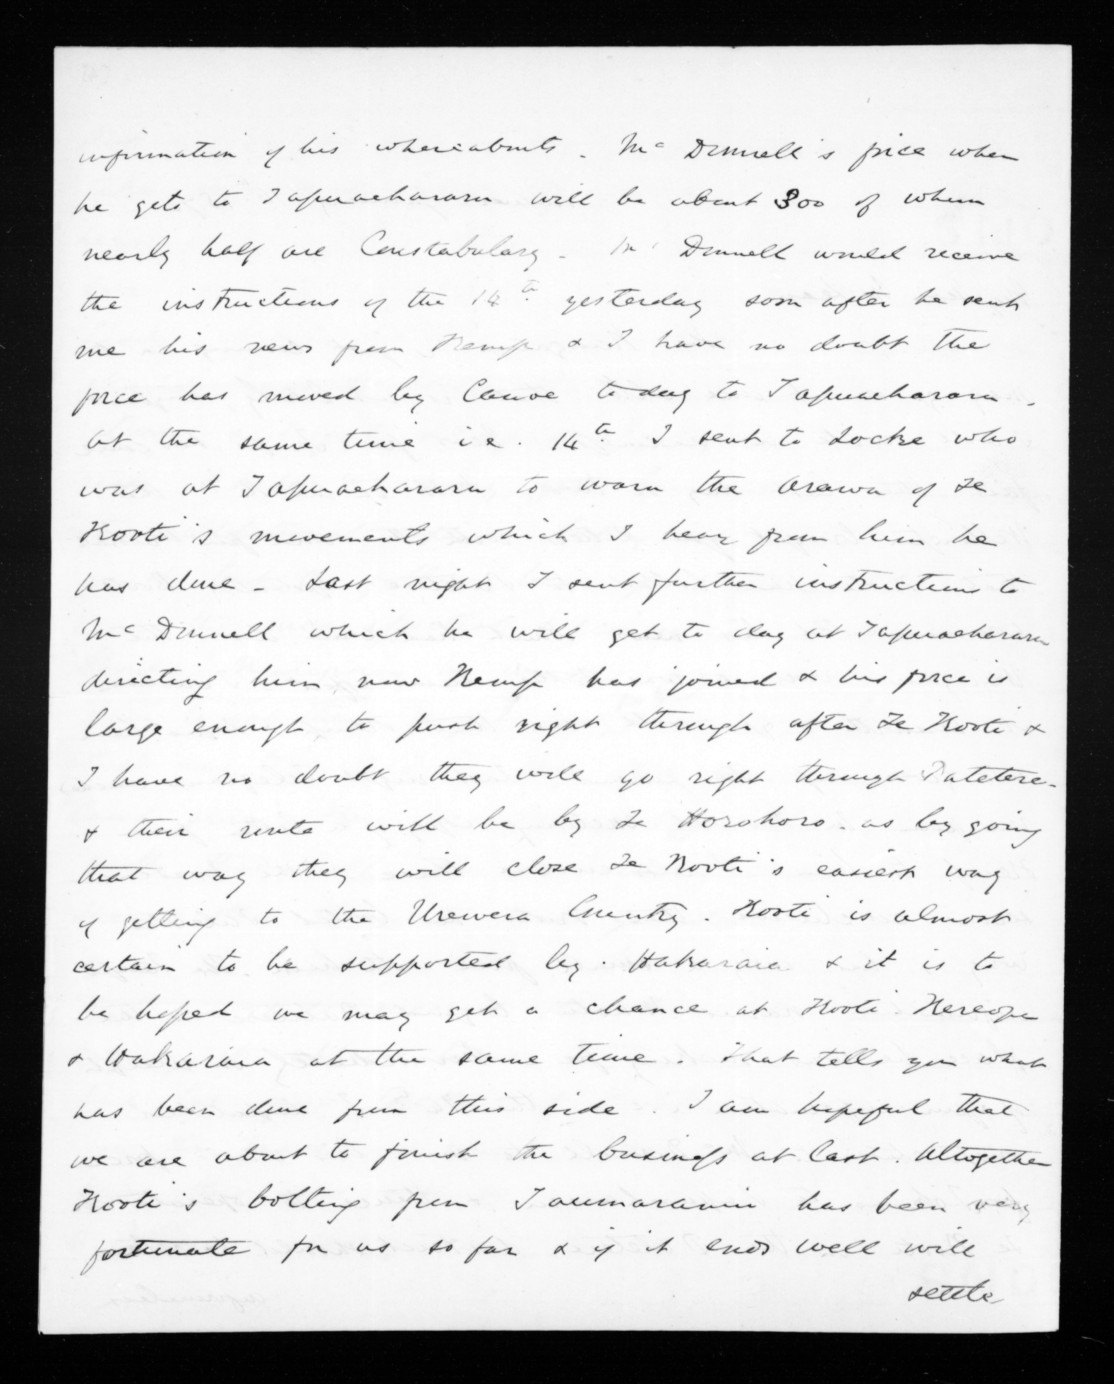 information of his whereabouts. Mc Donnell's force when
he gets to Tapuaeharuru will be about 300 of whom
nearly half are Constabulary. Mc Donnell would receive
the instructions of the 14th yesterday soon after he sent
me his news from Kemp & I have no doubt the
force has moved by Canoe to day to Tapuaeharuru.
At the same time i.e. 14th I sent to Locke who
was at Tapuaeharuru to warn the Arawa of Te
Kooti's movements which I hear from him he
has done - Last night I sent further instructions to
Mc Donnell which he will get to day at Tapuaeharuru
directing him, now Kemp has joined & his force is
large enough, to push right through after Te Kooti &
I have no doubt they will go right through Patetere
& their route will be by Te Horohoro. as by going
that way they will close Te Kooti's easiest way
of getting to the Urewera Country. Kooti is almost
certain to be supported by Hakaraia & it is to
be hoped we may get a chance at Kooti Kereopa
& Hakaraia at the same time. That tells you what
has been done from this side. I am hopeful that
we are about to finish the business at last. Altogether
Kooti's bolting from Taumaranui has been very
fortunate for us so far & if it ends well will
settle
information